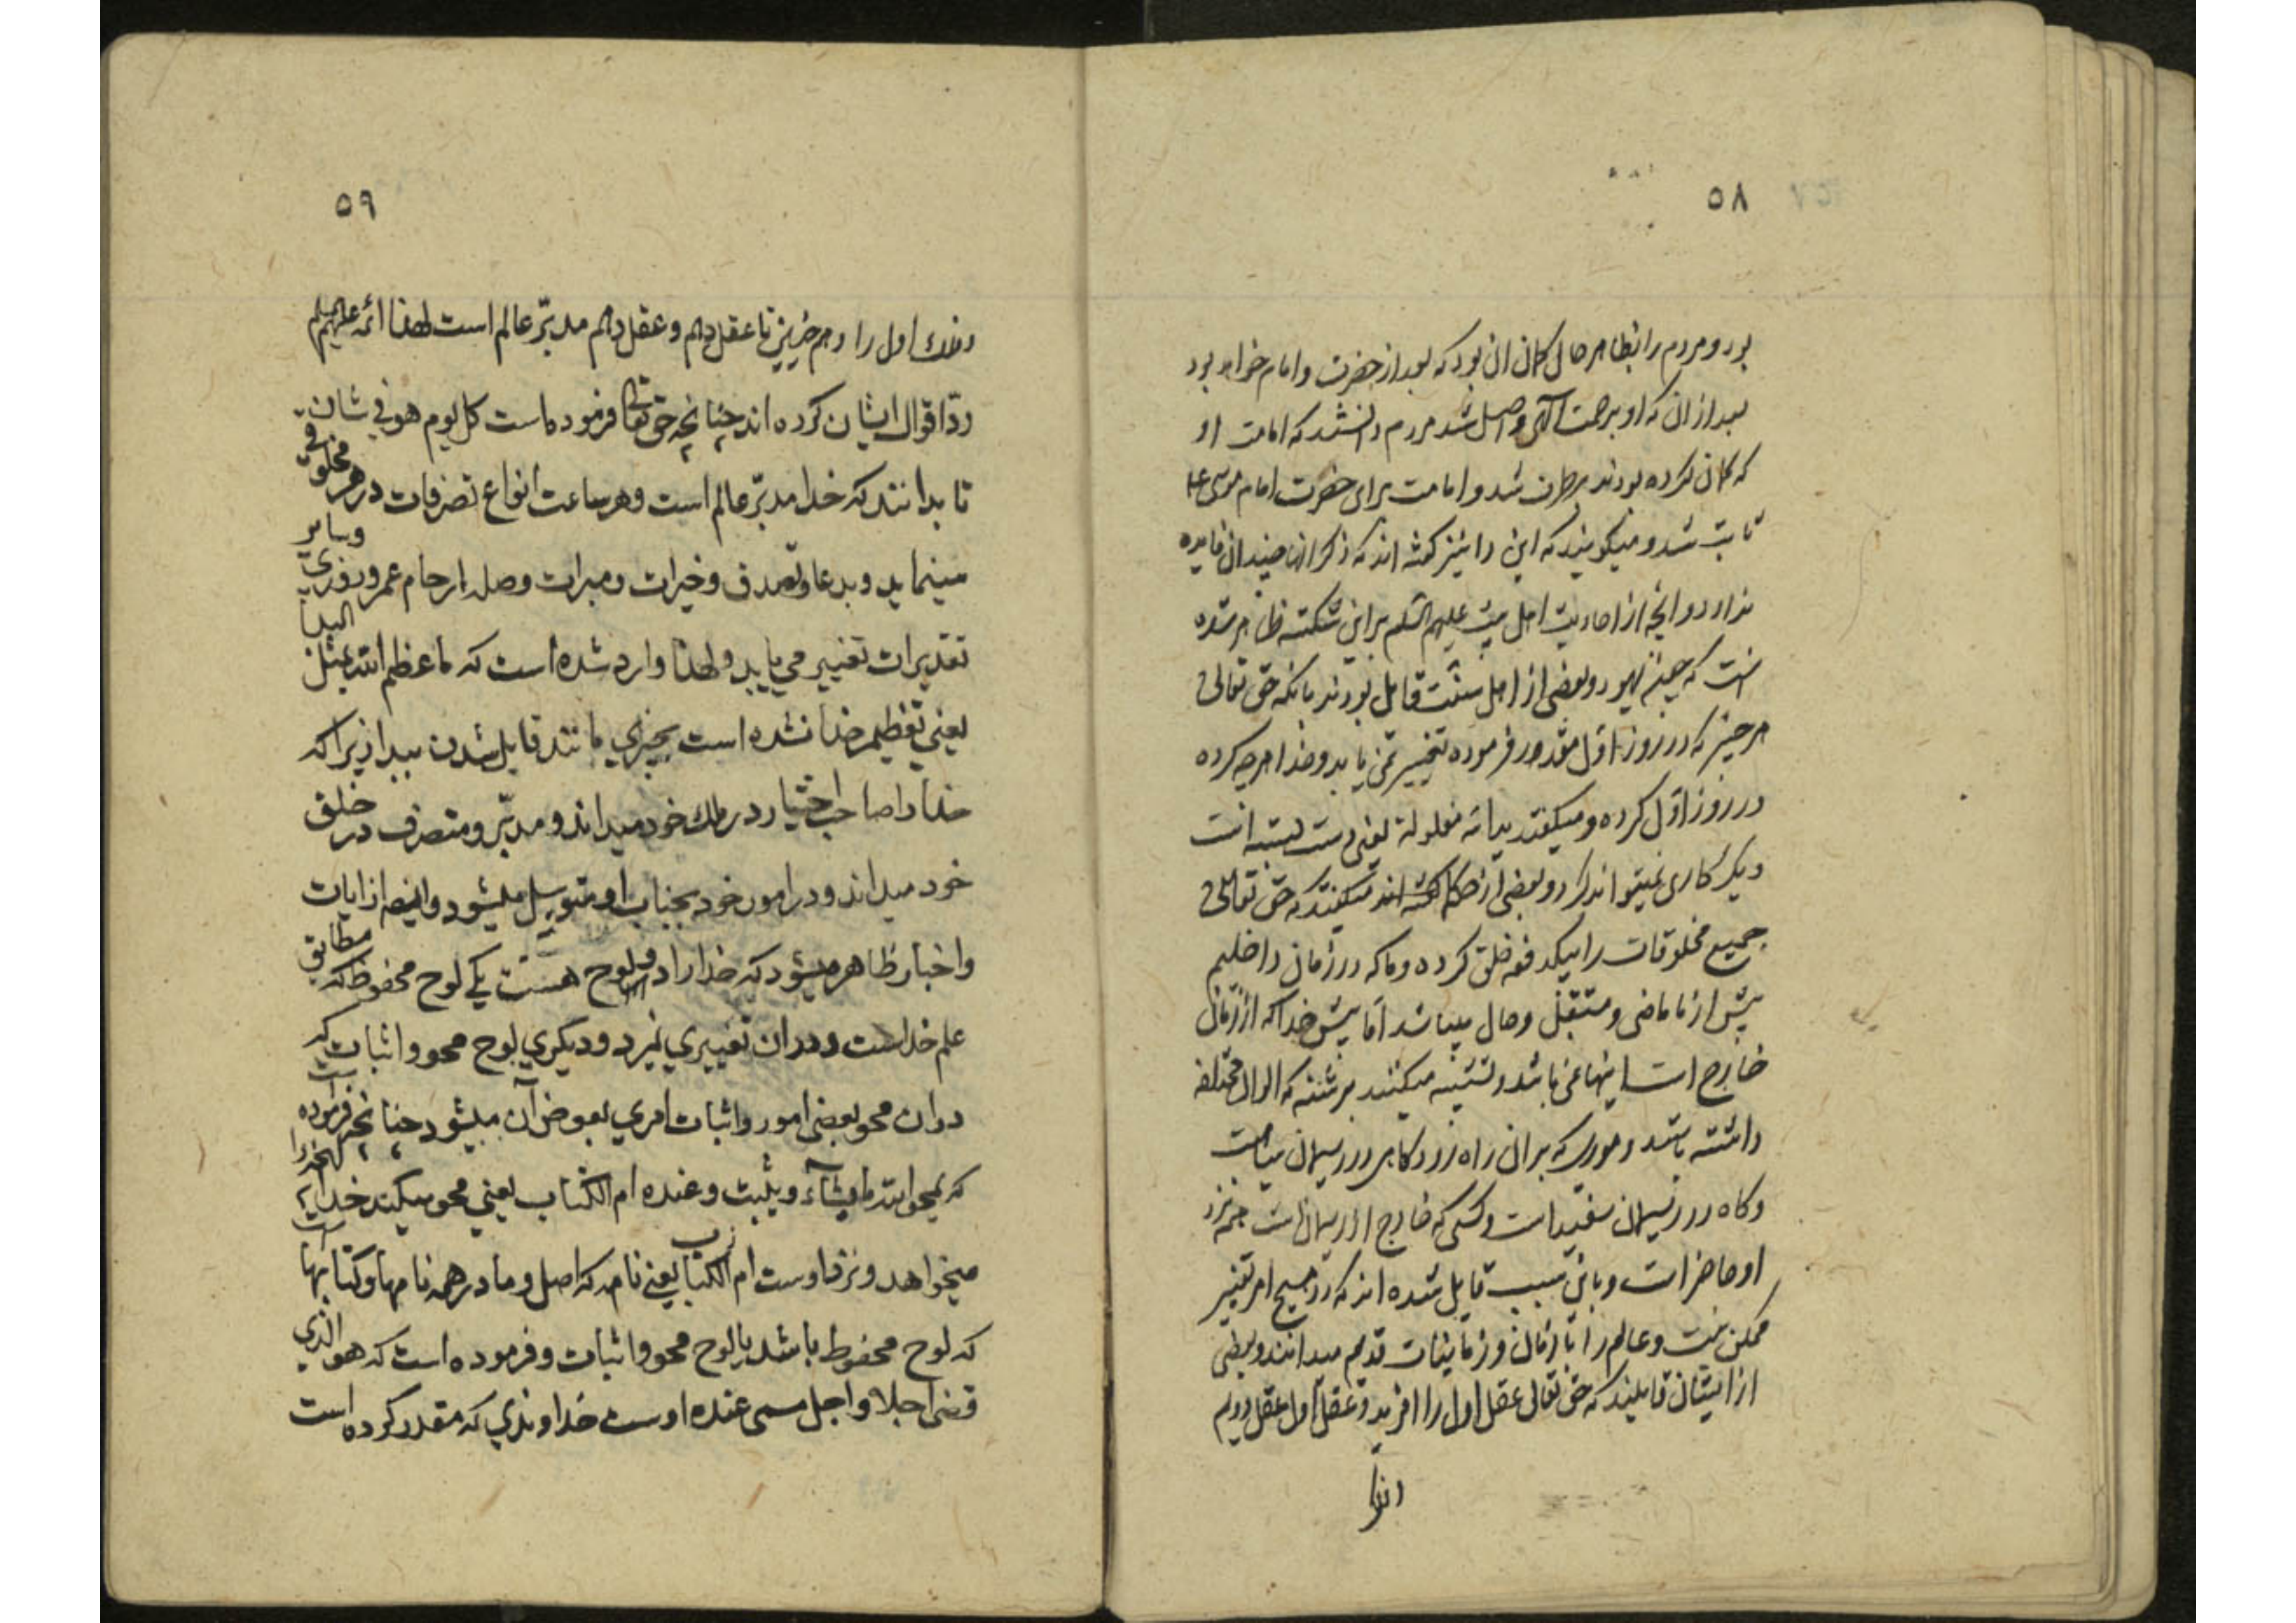 ۵۸
بود و مردم را بظاهر حال گمان آن بود که بعد از حضرت او امام خواهد بود
بعد از آن که او برحمت الهی واصل شد مردم دانستند که امامت او
که گمان کرده بودند برطرف شد و امامت برای حضرت امام موسی ع
ثابت شد و میگویند که این را نیز گفته اند که ذکر آنها چندان فایده
ندارد و آنچه از احادیث اهل بیت علیهم السلم براین شکسته ظاهر شده
آنست که چون یهود و بعضی از اهل سنت قایل بودند بانکه حق تعالی
هر چیز که در روز اول مقدور فرموده تغییر نمی یابد و خدا هرچه کرده
در روز اول کرده و میگفتند یدالله مغلولة یعنی دست بسته است
و دیگر کاری نمیتواند کرد و بعضی از حکما گفته اند میگفتند که حق تعالی
جمیع مخلوقات را بیکدفعه خلق کرده و ما که در زمان داخلیم
پیش از ما ماضی و مستقبل و حال میباشد اما پیش خدا که از زمان
خارج است اینها نمی باشد و تشبیه میکنند برشته که الوان مختلفه
داشته باشد و موری که بر آن راه رود گاهی در ریسمان سیاهست
و گاه در ریسمان سفید است و کسی که خارج از ریسمانست همه نزد
او حاضر است و باین سبب قایل شده اند که در هیچ امر تغییر
ممکن نیست و عالم را با زمان و زمانیات قدیم میدانند و بعضی
از ایشان قایلند که حق تعالی عقل اول را آفرید و عقل اول عقل دویم
۵۹
و فلک اول را و همچنین تا عقل دهم و عقل دهم مدبّر عالم است لهذا ائمه علیهم السلم
ردّ اقوال ایشان کرده اند چنانچه حق تعالی فرموده است کل یوم هو فی شان
تا بدانند که خدا مدبّر عالم است و هر ساعت انواع تصرفات در هر مخلوقی
مینماید و بدعا و تصدق و خیرات و مبرات و صله ارحام عمر و روزی و سایر
تقدیرات تغییر می یابد و لهذا وارد شده است که ما عظم الله بمثل البدا
یعنی تعظیم خدا نشده است بچیزی مانند قایل شدن ببدا زیرا که
خدا را صاحب اختیار در ملک خود میداند و مدبّر و متصرف در خلق
خود میداند و در امور خود بجناب او متوسل میشود و ایضا از ایات
و اخبار ظاهر میشود که خدا را دو لوح هست یکی لوح محفوظ که مطابق
علم خداست و در ان تغییری نمیرد و دیگری لوح محو و اثبات که
در ان محو بعضی امور و اثبات امری بعوض آن میشود چنانچه فرموده است
که یمحو الله ما یشآء و یثبت و عنده ام الکتاب یعنی محو میکند خدای آنچه را
میخواهد و نزد اوست ام الکتاب یعنی نامه که اصل و مادر همه نامها و کتابها است
که لوح محفوظ باشد یا لوح محو و اثبات و فرموده است که هو الذی
قضی اجلا و اجل مسمی عنده اوست خداوندی که مقدر کرده است